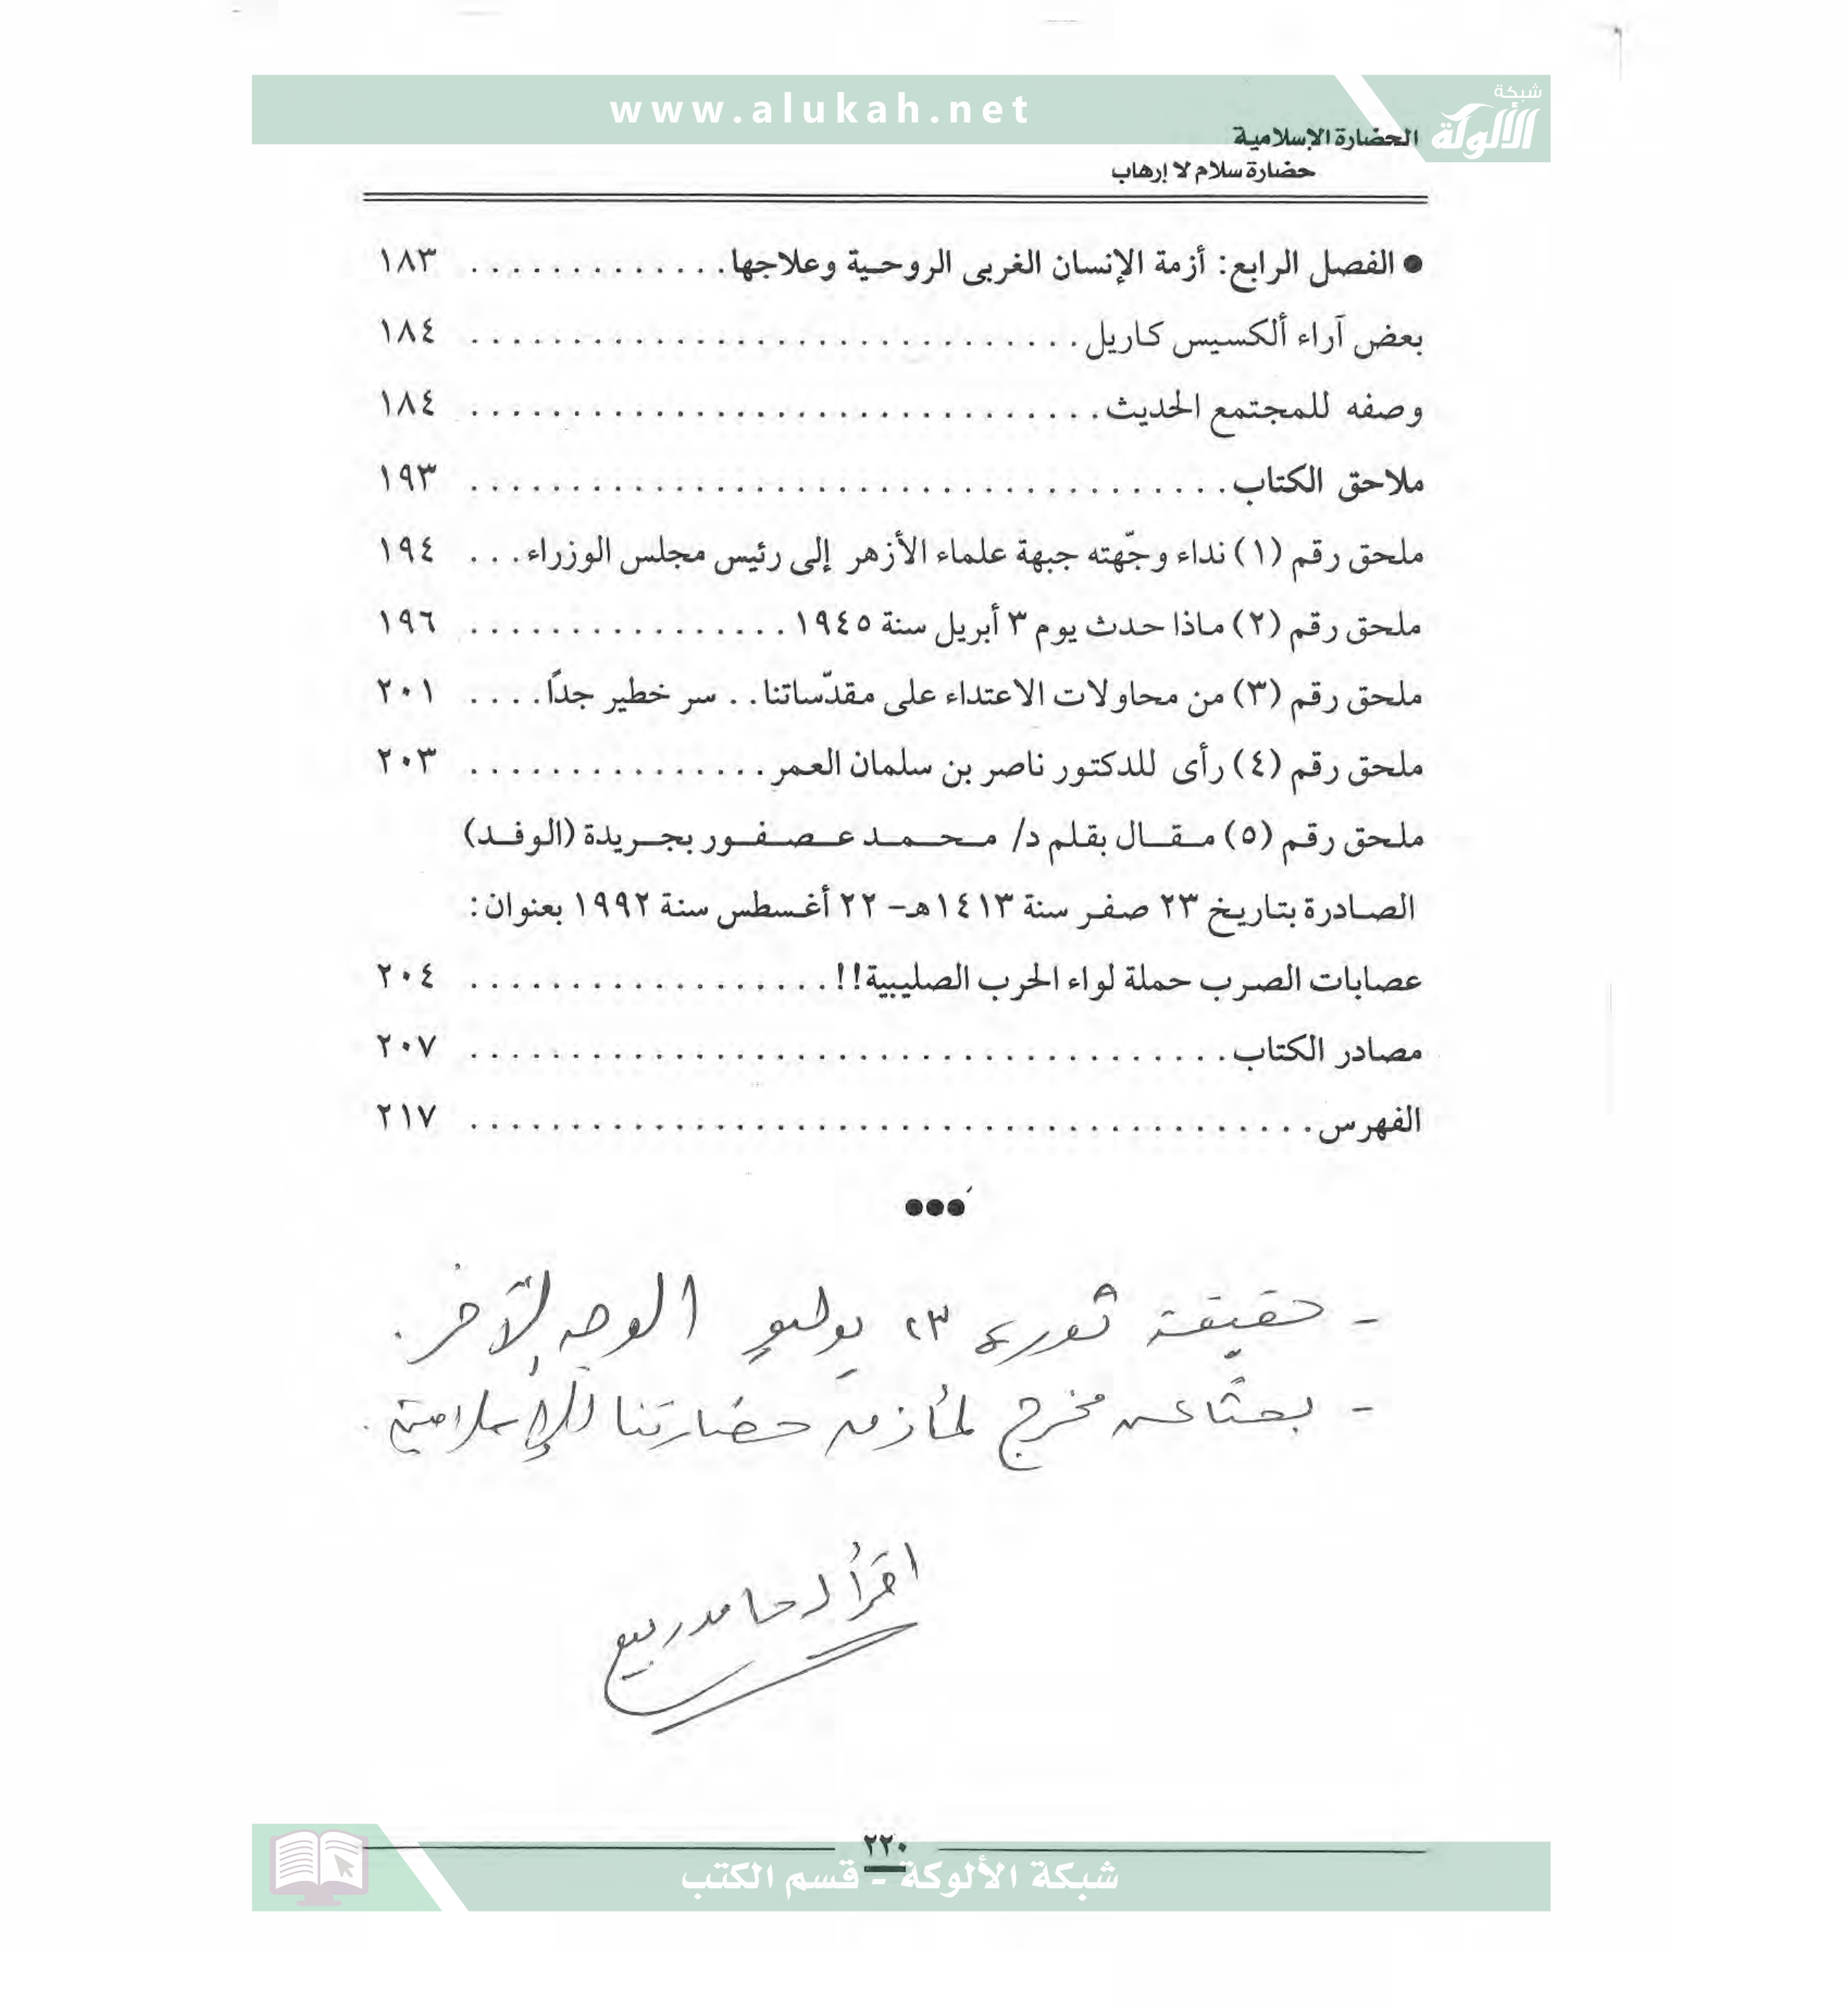 www.alukah.net
شبكة
الألوكة
الحضارة الإسلامية
حضارة سلام لا إرهاب
● الفصل الرابع: أزمة الإنسان الغربى الروحية وعلاجها ............. ١٨٣
بعض آراء ألكسيس كاريل .............................. ١٨٤
وصفه للمجتمع الحديث ............................... ١٨٤
ملاحق الكتاب ..................................... ١٩٣
ملحق رقم (١) نداء وجّهته جبهة علماء الأزهر إلى رئيس مجلس الوزراء ... ١٩٤
ملحق رقم (٢) ماذا حدث يوم ٣ أبريل سنة ١٩٤٥ ................ ١٩٦
ملحق رقم (٣) من محاولات الاعتداء على مقدّساتنا .. سر خطير جدًا .... ٢٠١
ملحق رقم (٤) رأى للدكتور ناصر بن سلمان العمر ............... ٢٠٣
ملحق رقم (٥) مقال بقلم د/ محمد عصفور بجريدة (الوفد)
الصادرة بتاريخ ٢٣ صفر سنة ١٤١٣هـ- ٢٢ أغسطس سنة ١٩٩٢ بعنوان:
عصابات الصرب حملة لواء الحرب الصليبية!! .................. ٢٠٤
مصادر الكتاب ..................................... ٢٠٧
الفهرس .......................................... ٢١٧
●●●
- حقيقة ثورة ٢٣ يوليو الوجه الآخر.
- بحثًا عن مخرج لمأزق حضارتنا الإسلامية.
اقرأ لحامد ربيع
٢٢٠
شبكة الألوكة - قسم الكتب